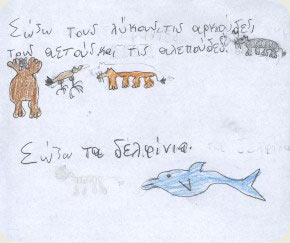 Σώζω τους λύκους, τις αρκούδες,
τους αετούς και τις αλεπούδες.
Σώζω τα δελφίνια.